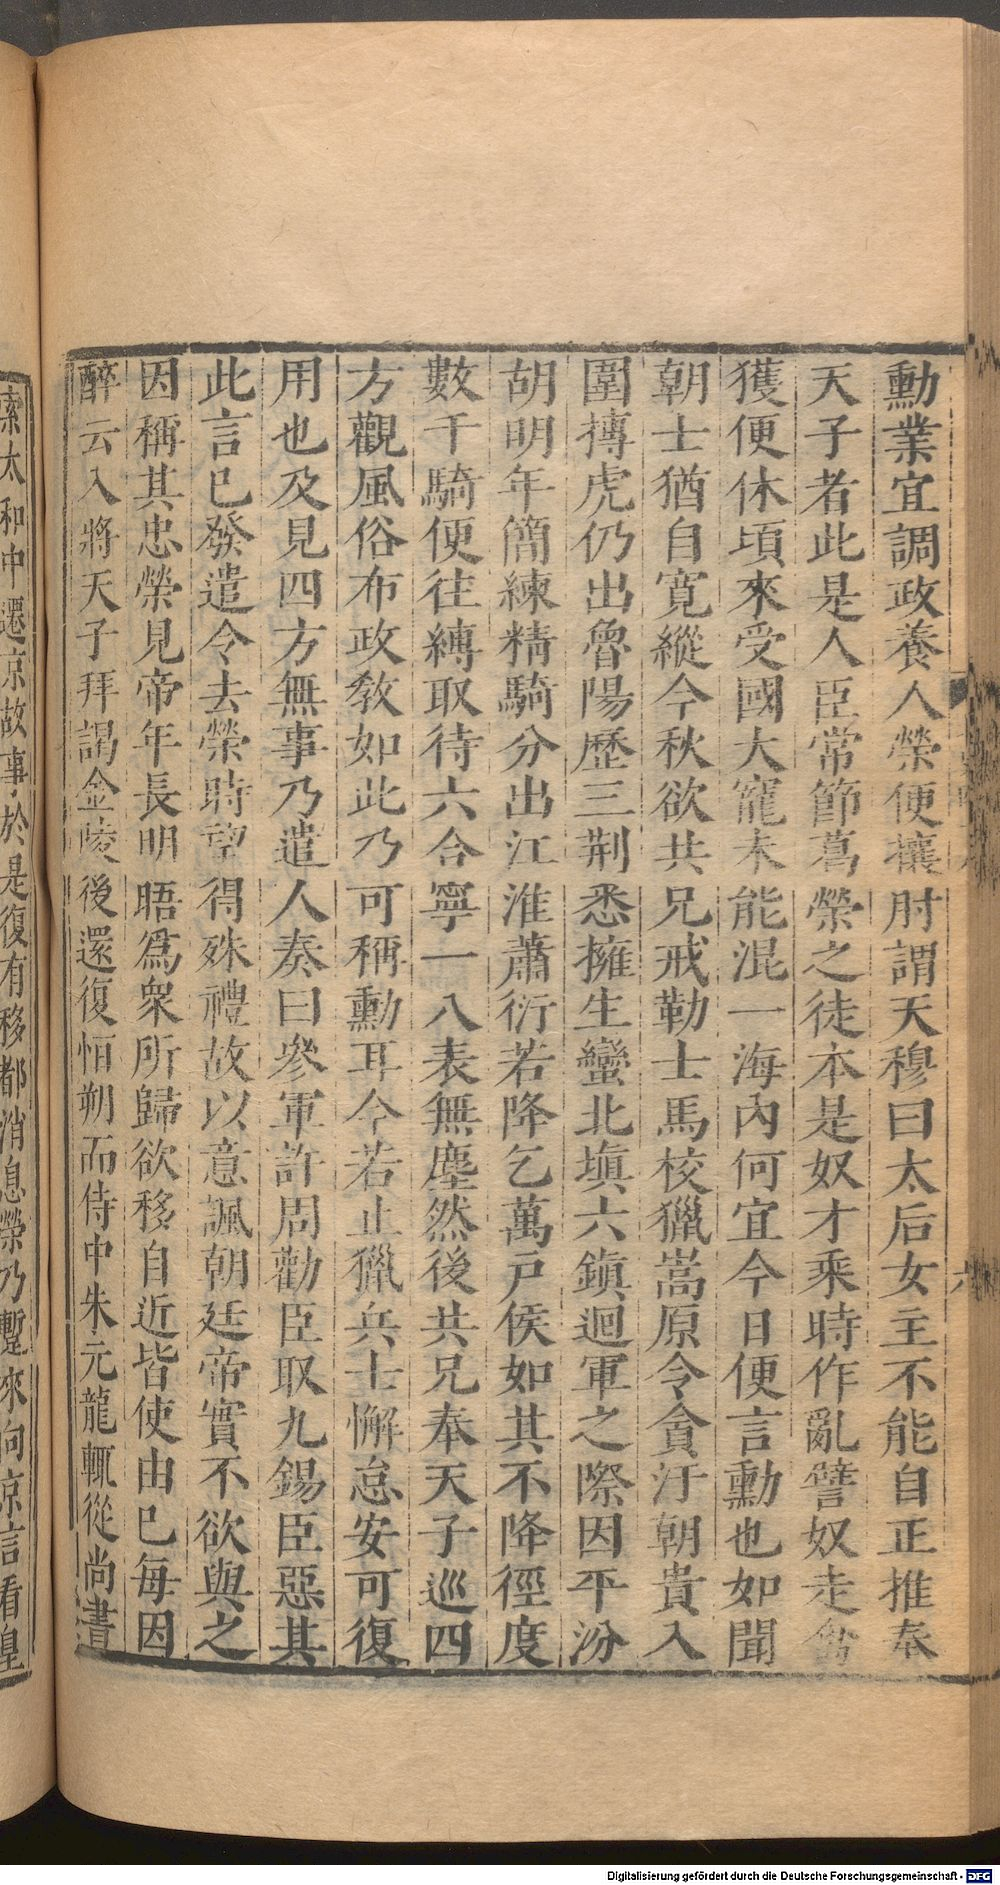 勳業宜調政養人榮便攘肘謂天穆曰太后女主不能自正推奉
天子者此是人臣常節葛榮之徒本是奴才乘時作亂譬奴走
獲便休頃來受國大寵未能混一海內何宜今日便言勳也如聞
朝士猶自寬縱今秋欲共兄戒勒士馬校獵嵩原令貪汙朝貴入
圍搏虎仍出魯陽歷三荆悉擁生蠻北塡六鎭迴軍之際因平汾
胡明年簡練精騎分出江淮蕭衍若降乞萬戸侯如其不降徑度
數千騎便往縳取待六合寧一八表無塵然後共兄奉天子巡四
方觀風俗布政敎如此乃可稱勳耳今若止獵兵士懈怠安可復
用也及見四方無事乃遣人奏曰叅軍許周勸臣取九錫臣惡其
此言已發遣令去榮時望得殊禮故以意諷朝廷帝實不欲與之
因稱其忠榮見帝年長明晤爲衆所歸欲移自近皆使由已每因
醉云入將天子拜謁金陵後還復恒朔而侍中朱元龍輒從尚書
索太和中遷京故事於是復有移都消息榮乃暫來向京言看皇
六
Digitalisierung gefördert durch die Deutsche Forschungsgemeinschaft - DFG